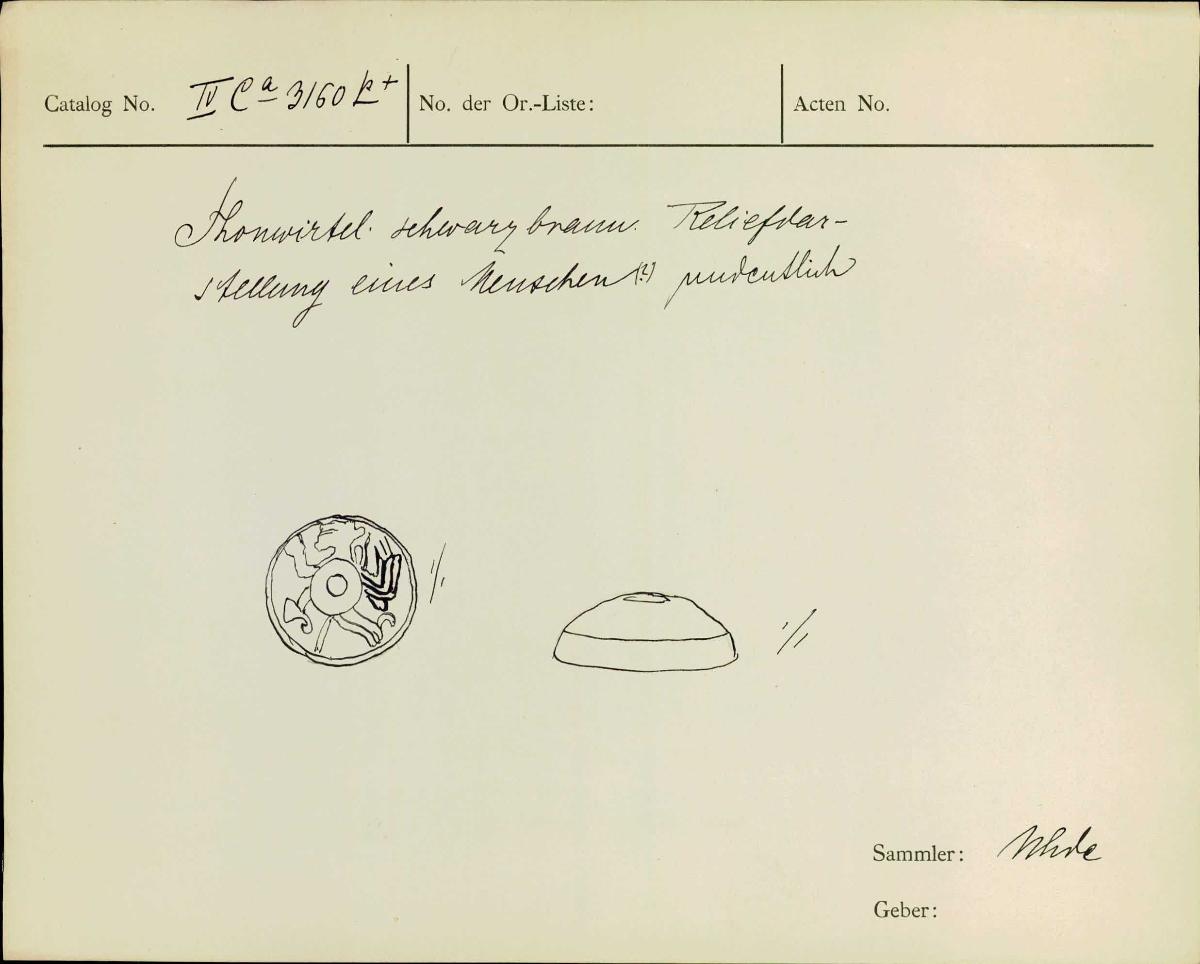 Catalog No. IV Ca 3160 k+ No. der Or.-Liste: Acten No.
Thonwirtel. schwarzbraun. Reliefdar-
stellung eines Menschen (?) undeutlich
1/1
1/1
Sammler: Uhde
Geber: